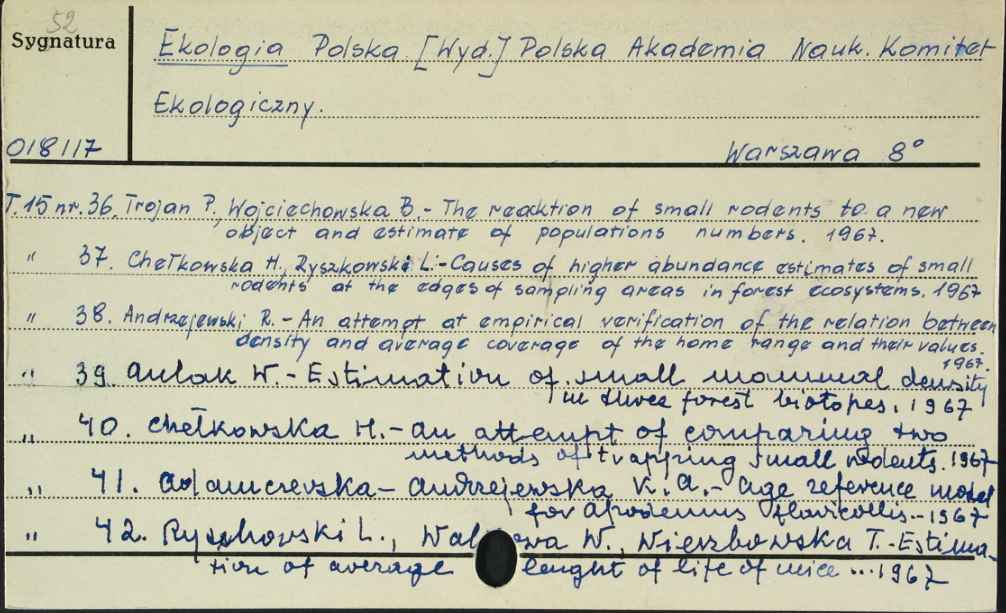 52
Sygnatura
Ekologia Polska [Wyd.] Polska Akademia Nauk. Komitet
Ekologiczny.
018117
Warszawa 8°
T.15 nr.36. Trojan P., Wojciechowska B.- The reacktion of small rodents to a new
object and estimate of populations numbers. 1967.
" 37. Chełkowska H., Ryszkowski L.-Causes of higher abundance estimates of small
rodents at the edges of sampling areas in forest ecosystems. 1967
" 38. Andrzejewski R.- An attempt at empirical verification of the relation between
density and average coverage of the home range and their values.
1967.
" 39. Aulak W.- Estimation of small mammal density
in three forest biotopes. 1967
" 40. Chełkowska H.- An attempt of comparing two
methods of trapping small rodents. 1967
" 41. Adamczewska- Andrzejewska K. A.- Age reference model
for Apodemus flavicollis.- 1967
" 42. Ryszkowski L., W., Wierzbowska T.- Estima-
tion of average lenght of life of mice ... 1967